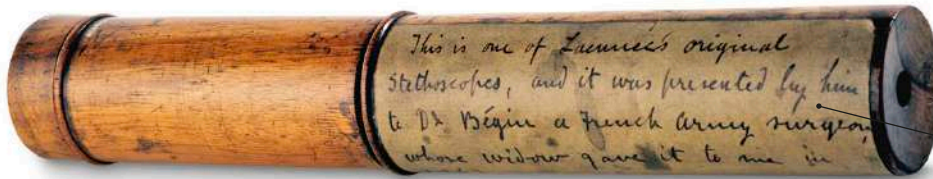 This is one of Laennec's original
Stethoscopes, and it was presented by him
to Dr Bégin a French Army surgeon,
whose widow gave it to me in